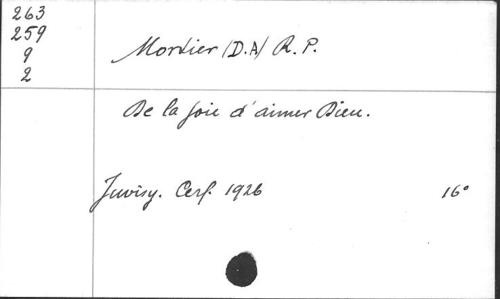 263
259
9
2
Mortier (D.A) R.P.
De la joie d'aimer Dieu.
Juvisy. Cerf. 1926 16°